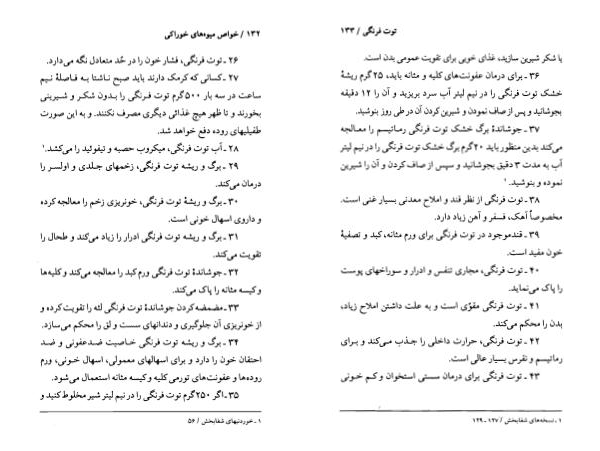 ۱۳۲ / خواص میوه‌های خوراکی
۲۶ ـ توت فرنگی، فشار خون را در حُد متعادل نگه می‌دارد.
۲۷ ـ کسانی که کرمک دارند باید صبح ناشتا به فاصلهٔ نیم
ساعت در سه بار ۵۰۰ گرم توت فرنگی را بدون شکر و شیرینی
بخورند و تا ظهر هیچ غذائی دیگری مصرف نکنند. و به این صورت
طفیلیهای روده دفع خواهد شد.
۲۸ ـ آب توت فرنگی، میکروب حصبه و تیفوئید را می‌کشد.۱
۲۹ ـ برگ و ریشه توت فرنگی، زخمهای جلدی و اولسر را
درمان می‌کند.
۳۰ ـ برگ و ریشهٔ توت فرنگی، خونریزی زخم را معالجه کرده
و داروی اسهال خونی است.
۳۱ ـ برگ و ریشه توت فرنگی ادرار را زیاد می‌کند و طحال را
تقویت می‌کند.
۳۲ ـ جوشاندهٔ توت فرنگی ورم کبد را معالجه می‌کند و کلیه‌ها
و کیسه مثانه را پاک می‌کند.
۳۳ ـ مضمضه کردن جوشاندهٔ توت فرنگی لثه را تقویت کرده و
از خونریزی آن جلوگیری و دندانهای سست و لق را محکم می‌سازد.
۳۴ ـ برگ و ریشه توت فرنگی خاصیت ضدعفونی و ضد
احتقان خون را دارد و برای اسهالهای معمولی، اسهال خونی، ورم
روده‌ها و عفونت‌های تورمی کلیه و کیسه مثانه استعمال می‌شود.
۳۵ ـ اگر ۲۵۰ گرم توت فرنگی را در نیم لیتر شیر مخلوط کنید و
۱ ـ خوردنیهای شفابخش / ۵۶
توت فرنگی / ۱۳۳
یا شکر شیرین سازید، غذای خوبی برای تقویت عمومی بدن است.
۳۶ ـ برای درمان عفونت‌های کلیه و مثانه باید، ۲۵ گرم ریشهٔ
خشک توت فرنگی را در نیم لیتر آب سرد بریزید و آن را ۱۲ دقیقه
بجوشانید و پس از صاف نمودن و شیرین کردن آن در طی روز بنوشید.
۳۷ ـ جوشاندهٔ برگ خشک توت فرنگی رماتیسم را معالجه
می‌کند بدین منظور باید ۲۰ گرم برگ خشک توت فرنگی در نیم لیتر
آب به مدت ۳ دقیق بجوشانید و سپس از صاف کردن و آن را شیرین
نموده و بنوشید.۱
۳۸ ـ توت فرنگی از نظر قند و املاح معدنی بسیار غنی است.
مخصوصاً آهک، فسفر و آهن زیاد دارد.
۳۹ ـ قند موجود در توت فرنگی برای ورم مثانه، کبد و تصفیهٔ
خون مفید است.
۴۰ ـ توت فرنگی، مجاری تنفس و ادرار و سوراخهای پوست
را پاک می‌نماید.
۴۱ ـ توت فرنگی مقوّی است و به علت داشتن املاح زیاد،
بدن را محکم می‌کند.
۴۲ ـ توت فرنگی، حرارت داخلی را جذب می‌کند و برای
رماتیسم و نقرس بسیار عالی است.
۴۳ ـ توت فرنگی برای درمان سستی استخوان و کم خونی
۱ ـ نسخه‌های شفابخش / ۱۲۷ ـ ۱۲۹